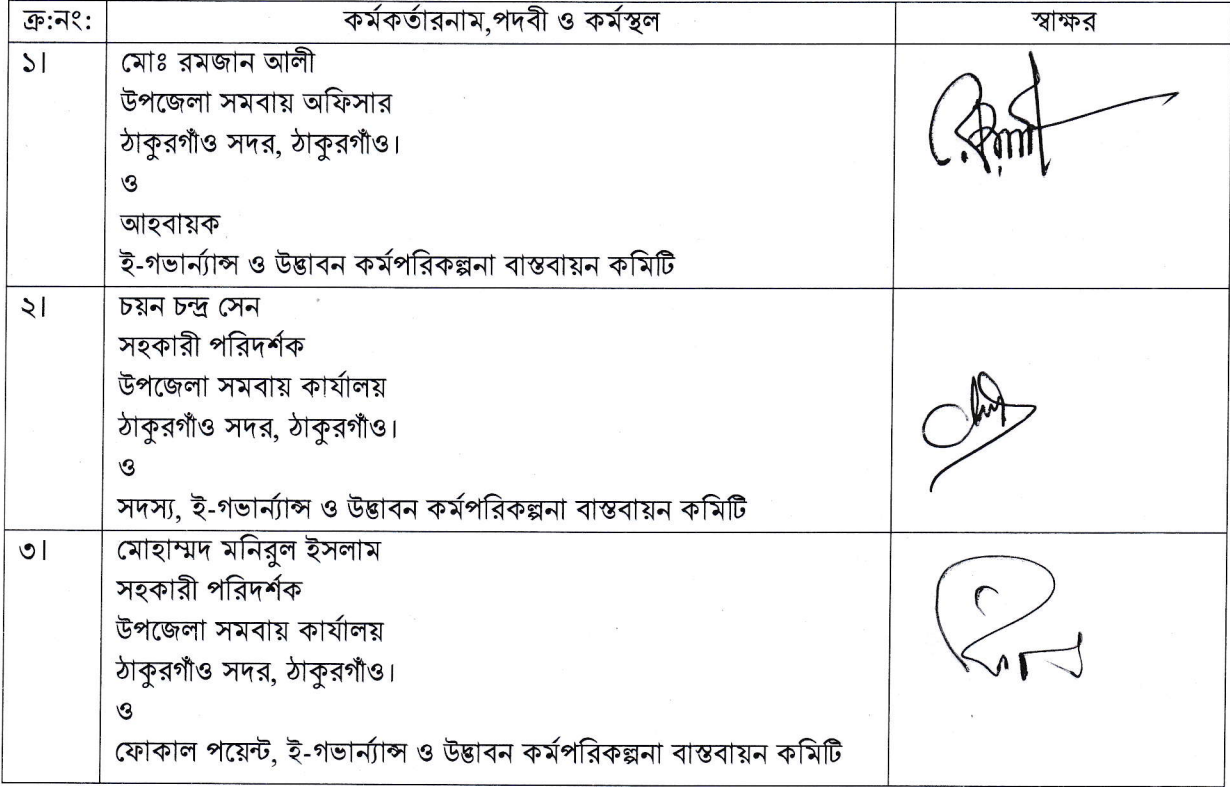 ক্র:নং: কর্মকর্তারনাম,পদবী ও কর্মস্থল স্বাক্ষর
১। মোঃ রমজান আলী
উপজেলা সমবায় অফিসার
ঠাকুরগাঁও সদর, ঠাকুরগাঁও।
ও
আহবায়ক
ই-গভার্ন্যান্স ও উদ্ভাবন কর্মপরিকল্পনা বাস্তবায়ন কমিটি
২। চয়ন চন্দ্র সেন
সহকারী পরিদর্শক
উপজেলা সমবায় কার্যালয়
ঠাকুরগাঁও সদর, ঠাকুরগাঁও।
ও
সদস্য, ই-গভার্ন্যান্স ও উদ্ভাবন কর্মপরিকল্পনা বাস্তবায়ন কমিটি
৩। মোহাম্মদ মনিরুল ইসলাম
সহকারী পরিদর্শক
উপজেলা সমবায় কার্যালয়
ঠাকুরগাঁও সদর, ঠাকুরগাঁও।
ও
ফোকাল পয়েন্ট, ই-গভার্ন্যান্স ও উদ্ভাবন কর্মপরিকল্পনা বাস্তবায়ন কমিটি